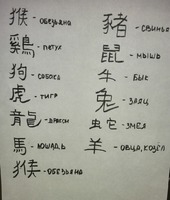 猴 - обезьяна
鷄 - петух
狗 - собака
虎 - тигр
龍 - дракон
馬 - лошадь
猴 - обезьяна
豬 - свинья
鼠 - мышь
牛 - бык
兔 - заяц
蛇 - змея
羊 - овца, козёл